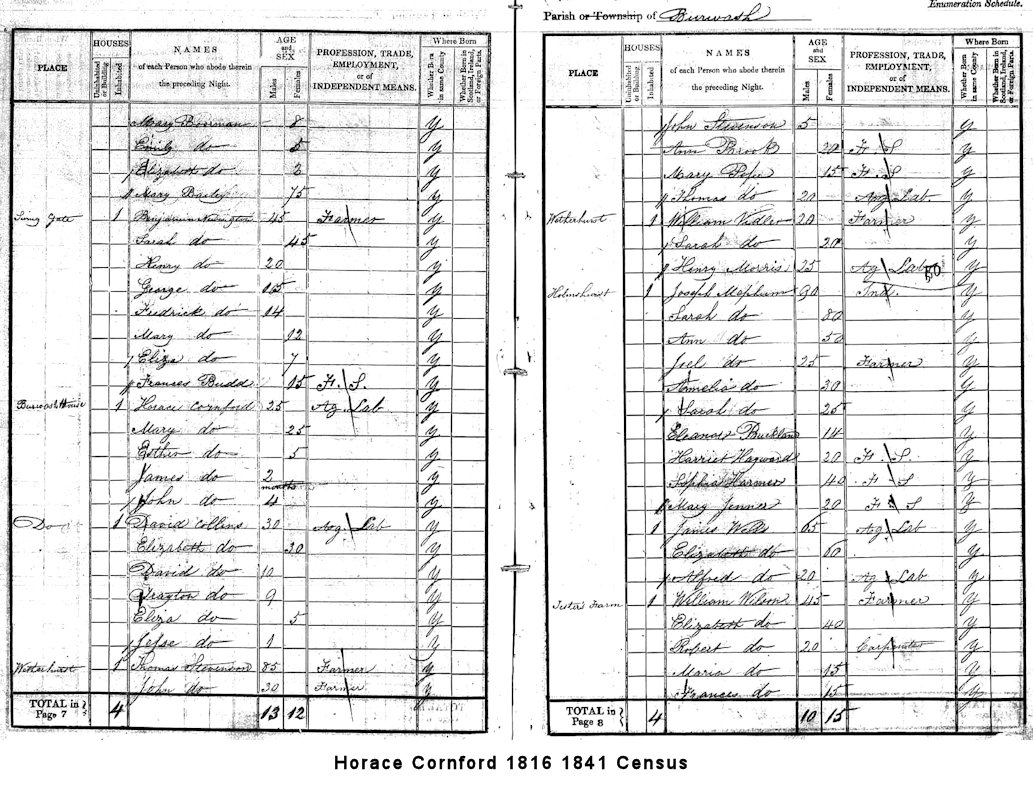 Enumeration Schedule.
Parish or Township of Burwash
PLACE
HOUSES
Uninhabited or Building
Inhabited
NAMES of each Person who abode therein the preceding Night.
AGE and SEX
Males
Females
PROFESSION, TRADE, EMPLOYMENT, or of INDEPENDENT MEANS.
Where Born
Whether Born in same County
Whether Born in Scotland, Ireland, or Foreign Parts.
Mary Boorman 8 y
Emily do 5 y
Elizabeth do 2 y
Mary Bailey 75 y
Gate 1 Benjamin Newington 45 Farmer y
Sarah do 45 y
Henry do 20 y
George do 15 y
Fredrick do 14 y
Mary do 12 y
Eliza do 7 y
Frances Budd 15 F. S. y
Burwash 1 Horace Cornford 25 Ag Lab y
Mary do 25 y
Esther do 5 y
James do 2 months y
John do 4 y
Do 1 David Collins 30 Ag Lab y
Elizabeth do 30 y
David do 10 y
Drayton do 9 y
Eliza do 5 y
Jesse do 1 y
Witherhurst 1 Thomas Stevenson 85 Farmer y
John do 30 Farmer y
TOTAL in Page 7 4 13 12
PLACE
HOUSES
Uninhabited or Building
Inhabited
NAMES of each Person who abode therein the preceding Night.
AGE and SEX
Males
Females
PROFESSION, TRADE, EMPLOYMENT, or of INDEPENDENT MEANS.
Where Born
Whether Born in same County
Whether Born in Scotland, Ireland, or Foreign Parts.
John Stevenson 5 y
Ann Brook 20 F. S y
Mary Pope 15 F. S y
Thomas do 20 Ag Lab y
Witherhurst 1 William Vidler 20 Farmer y
Sarah do 20 y
Henry Morris 25 Ag Lab y
Holmshurst 1 Joseph Mepham 90 Ind. y
Sarah do 80 y
Ann do 50 y
Joel do 25 Farmer y
Amelia do 30 y
Sarah do 25 y
Eleanor Buckland 14 y
Harriet Hayward 20 F. S. y
Sophia Harmer 40 F. S y
Mary Jenner 20 F. S y
1 James Wells 65 Ag Lab y
Elizabeth do 60 y
Alfred do 20 Ag Lab y
Farm 1 William Wilson 45 Farmer y
Elizabeth do 40 y
Robert do 20 Carpenter y
Maria do 15 y
Frances do 15 y
TOTAL in Page 8 4 10 15
Horace Cornford 1816 1841 Census